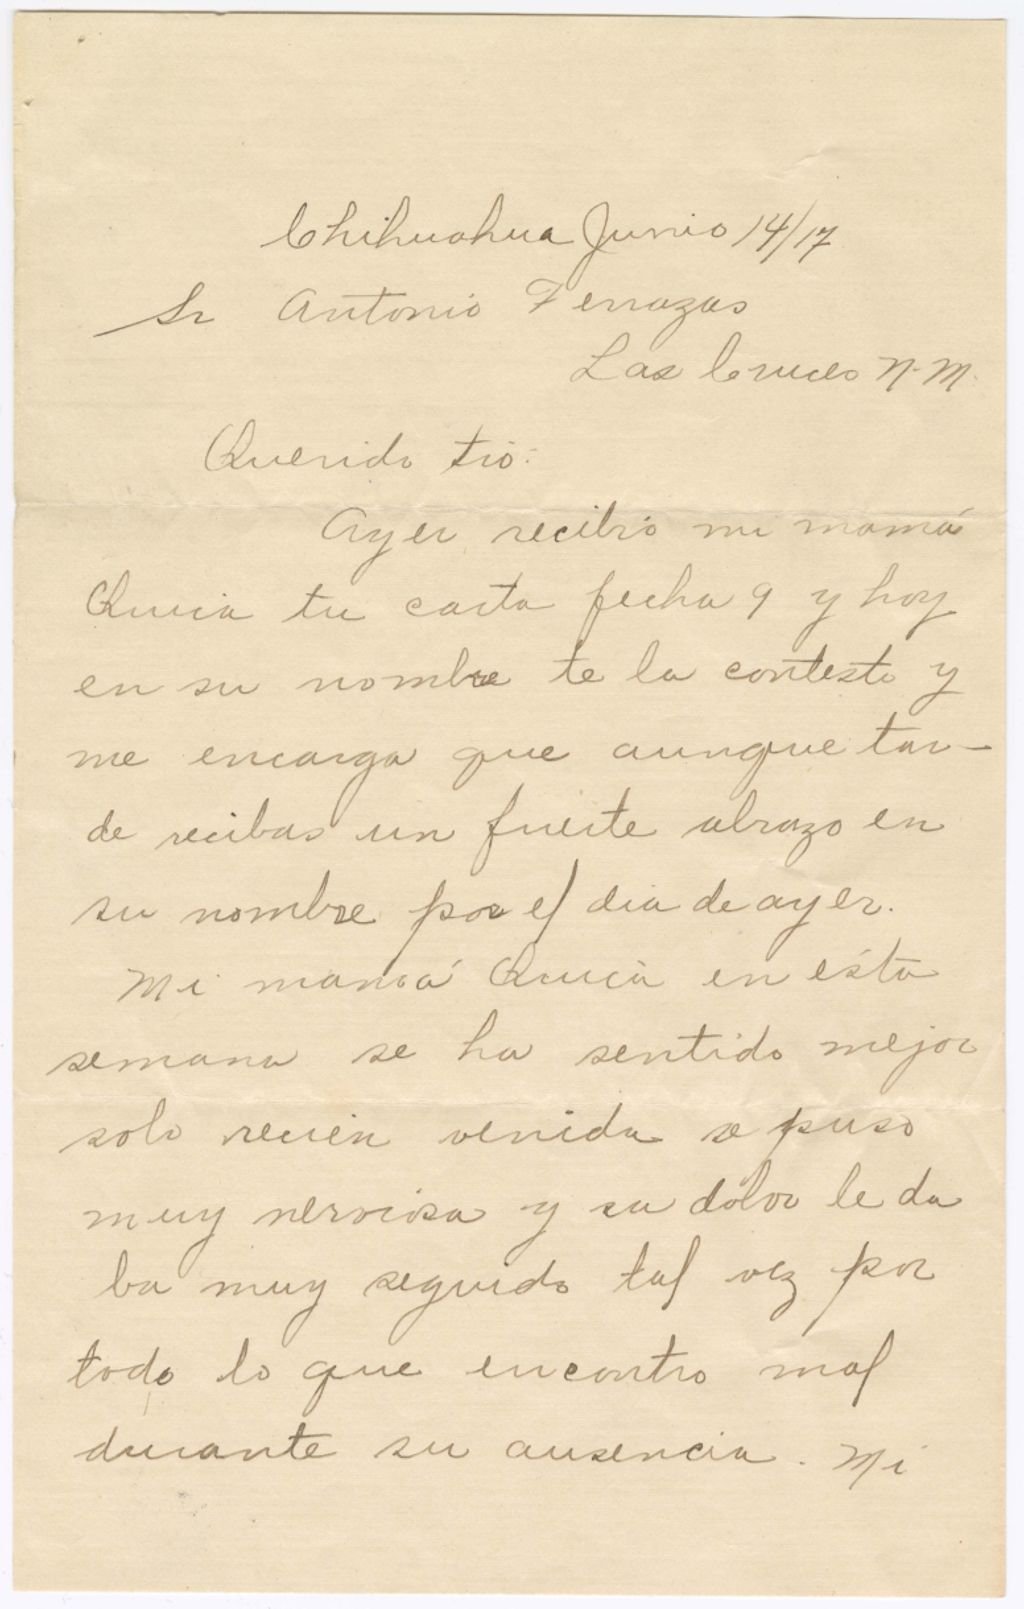 Chihuahua Junio 14/17
Sr Antonio Terrazas
Las Cruces N. M.
Querido tio:
Ayer recibio mi mamá
tu carta fecha 9 y hoy
en su nombre te la contesto y
me encarga que aunque tar-
de recibas un fuerte abrazo en
su nombre por el dia de ayer.
Mi mamá en ésta
semana se ha sentido mejor
solo recien venida se puso
muy nerviosa y su dolor le da
ba muy seguido tal vez por
todo lo que encontro mal
durante su ausencia. Mi